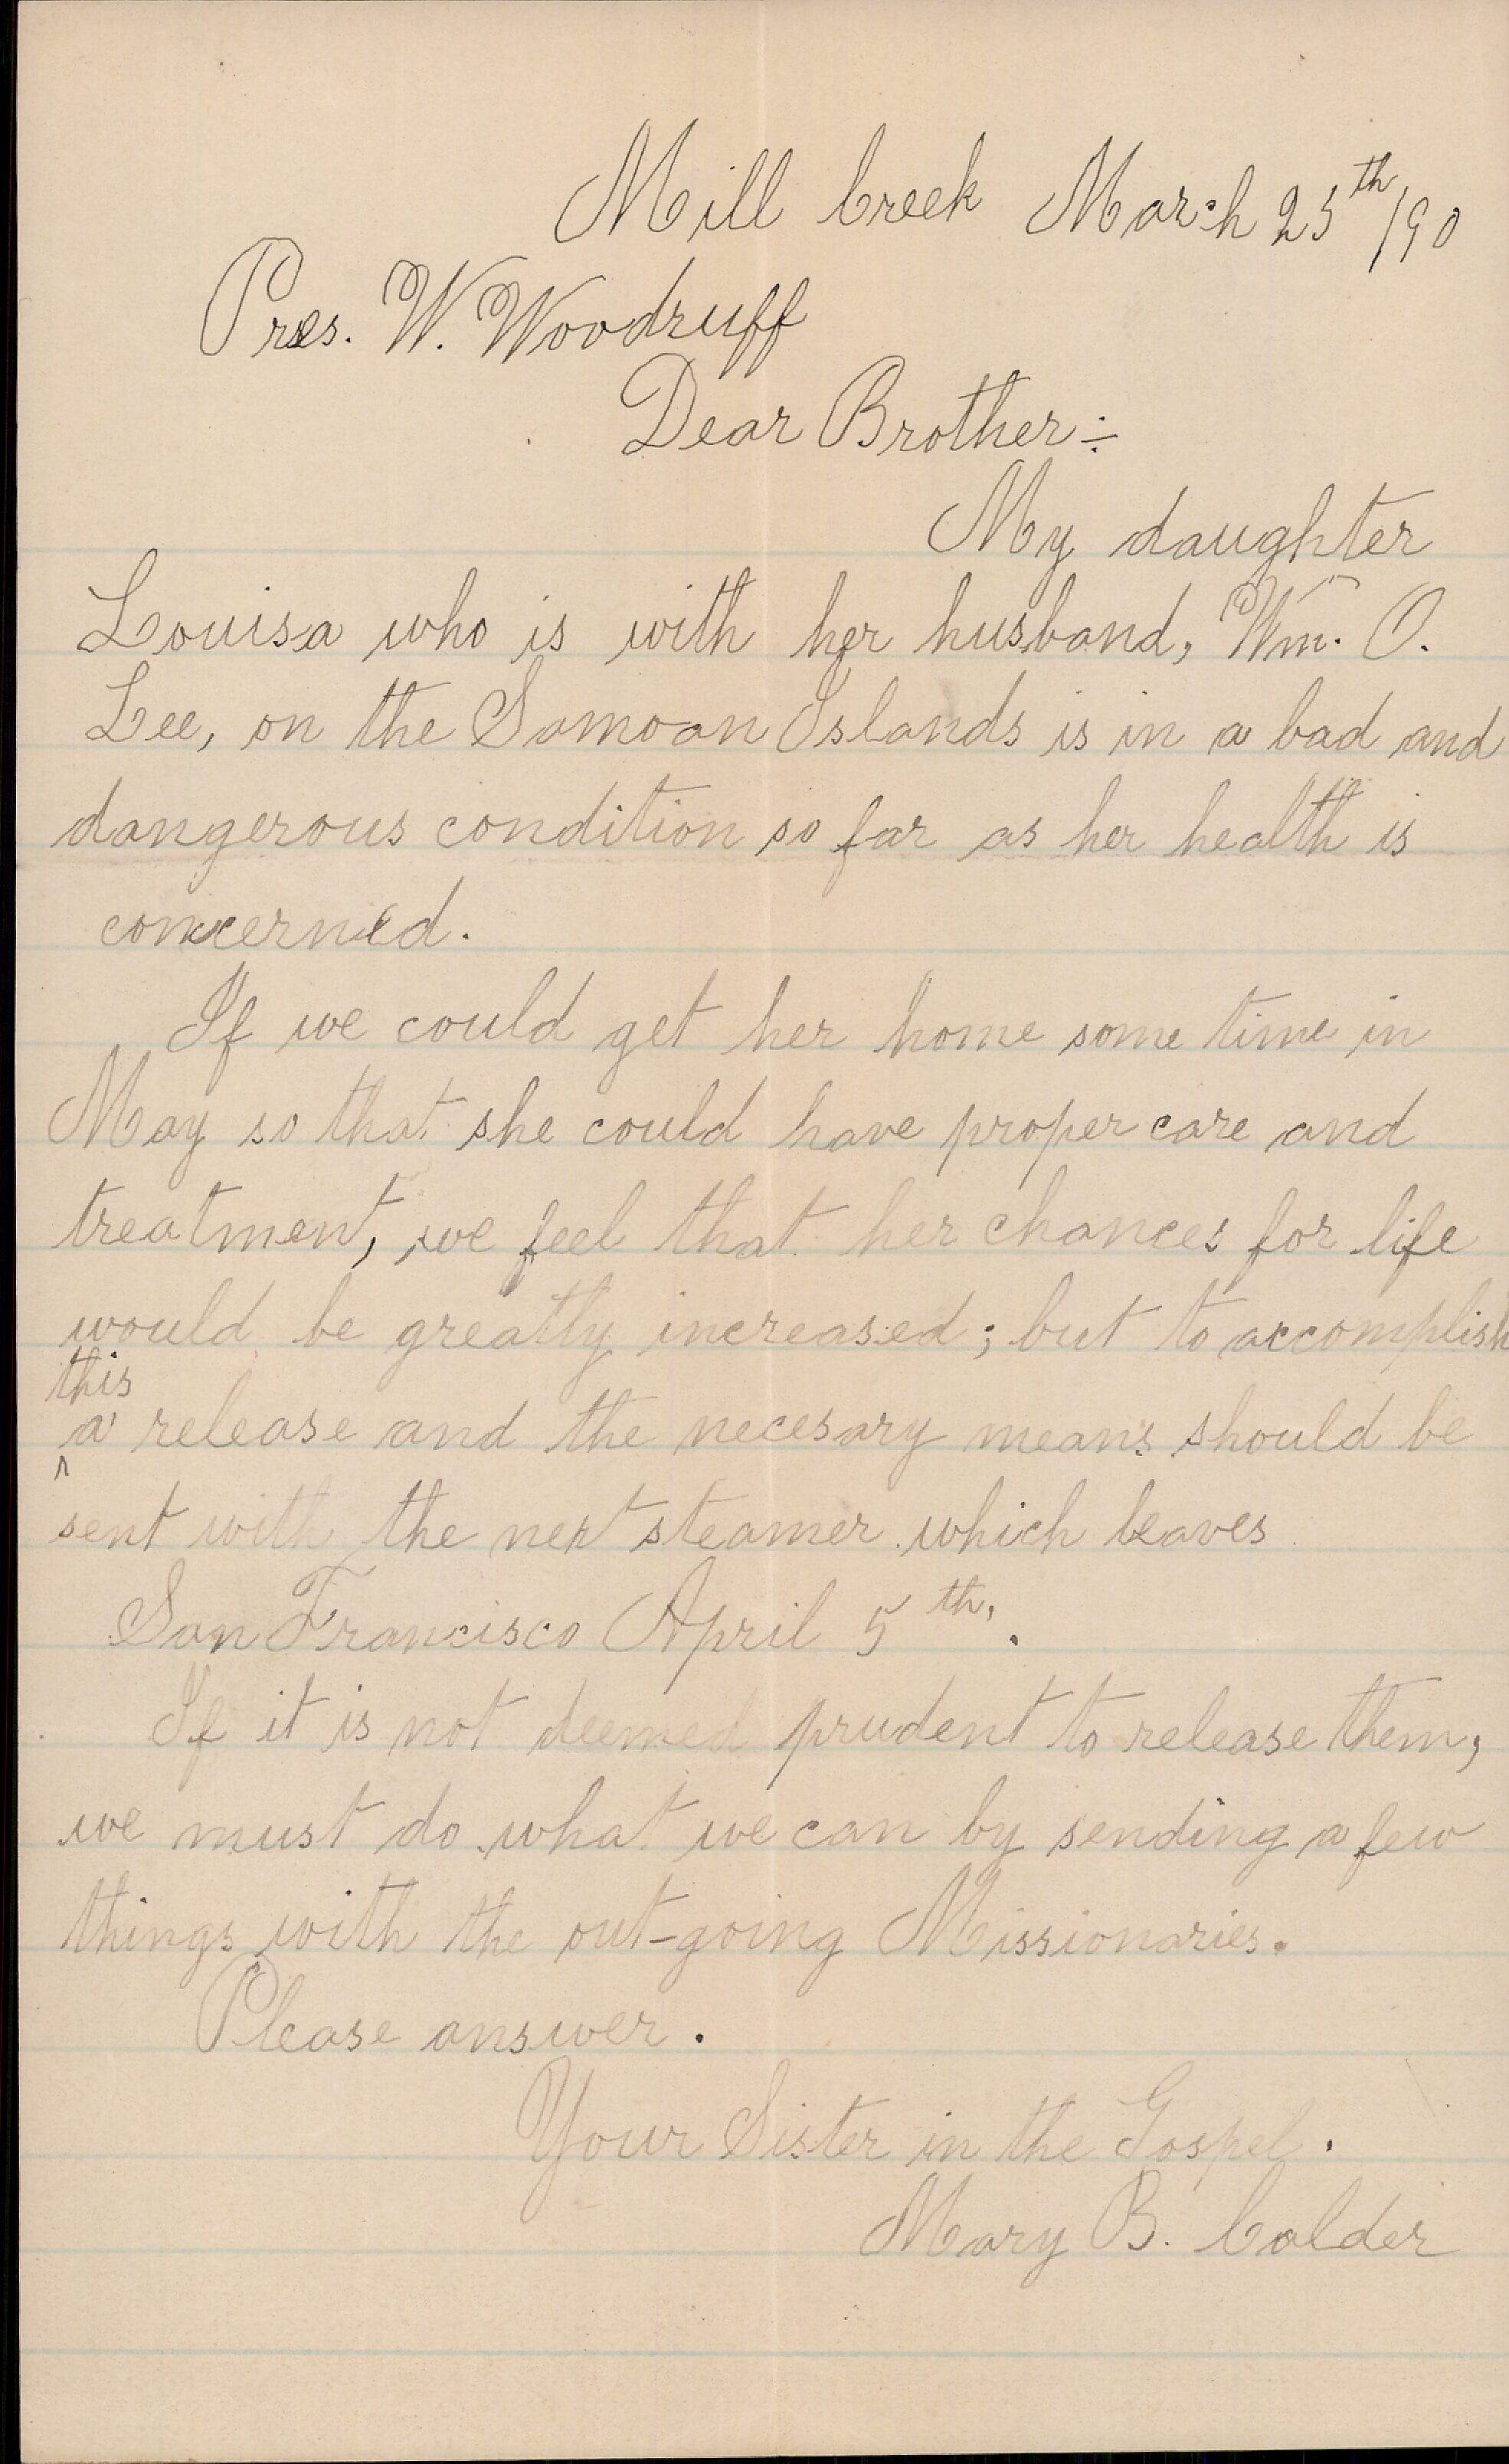 Mill Creek March 25th/90
Pres. W. Woodruff
Dear Brother:-
My daughter
Louisa who is with her husband, Wm. O.
Lee, on the Samoan Islands is in a bad and
dangerous condition so far as her health is
concerned.
If we could get her home some time in
May so that she could have proper care and
treatment, we feel that her chances for life
would be greatly increased; but to accomplish
this
^a release and the necesary means should be
sent with the next steamer which leaves
San Francisco April 5th.
If it is not deemed prudent to release them,
we must do what we can by sending a few
things with the out-going Missionaries.
Please answer.
Your Sister in the Gospel.
Mary B. Calder